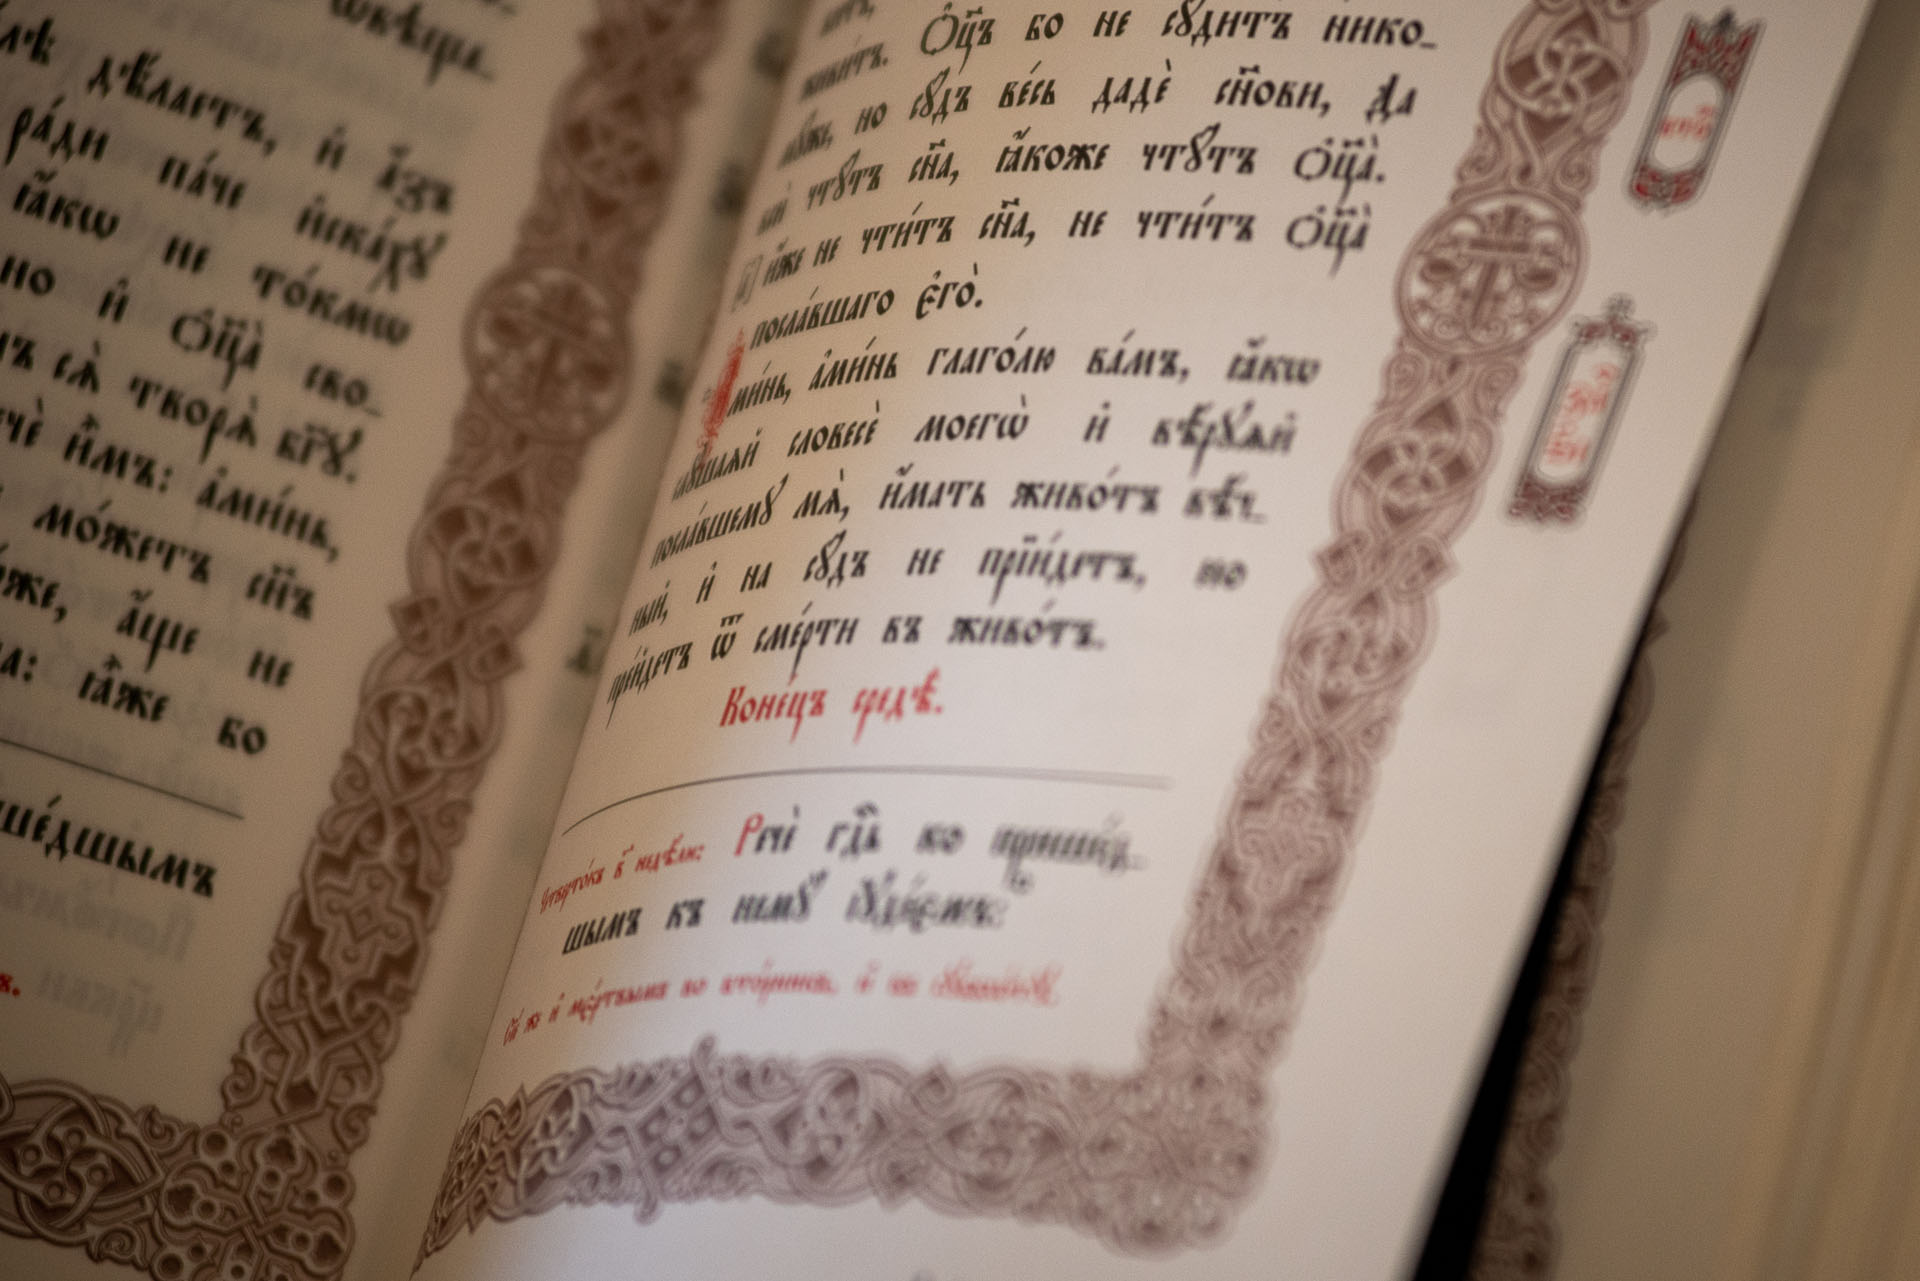 ѿвѣща_
дѣ́лаетъ, и҆ а҆́зъ
ра́ди па́че и҆ска́хꙋ
ꙗ҆́кѡ не то́кмѡ
но и҆ Ѻ҆ц҃а̀ сво_
сѧ̀ творѧ̀ бг҃ꙋ.
и҆̀мъ: а҆ми́нь,
мо́жетъ сн҃ъ
а҆́ще не
ꙗ҆̀же бо
ше́дшымъ
живи́тъ. Ѻ҆ц҃ъ бо не сꙋ́дитъ нико_
но сꙋ́дъ ве́сь дадѐ сн҃ови, Да
чтꙋ́тъ сн҃а, ꙗ҆́коже чтꙋ́тъ Ѻ҆ц҃а̀.
и҆́же не чти́тъ сн҃а, не чти́тъ Ѻ҆ц҃а̀
посла́вшаго є҆го̀.
А҆ми́нь, а҆ми́нь глаго́лю ва́мъ, ꙗ҆́кѡ
слꙋ́шаѧй словесѐ моегѡ̀ и҆ вѣ́рꙋѧй
посла́вшемꙋ мѧ̀, и҆́мать живо́тъ вѣ́ч_
ный, и҆ на сꙋ́дъ не прїи́детъ, но
пре́йдетъ ѿ сме́рти въ живо́тъ.
Коне́цъ средѣ̀.
Четверто́къ в҃ недѣ́лю: Речѐ гдⷭ҇ь ко прише́д_
шымъ къ немꙋ̀ і҆ꙋде́ємъ:
Се́й же и҆ ме́ртвымъ во вто́рникъ, и҆ въ